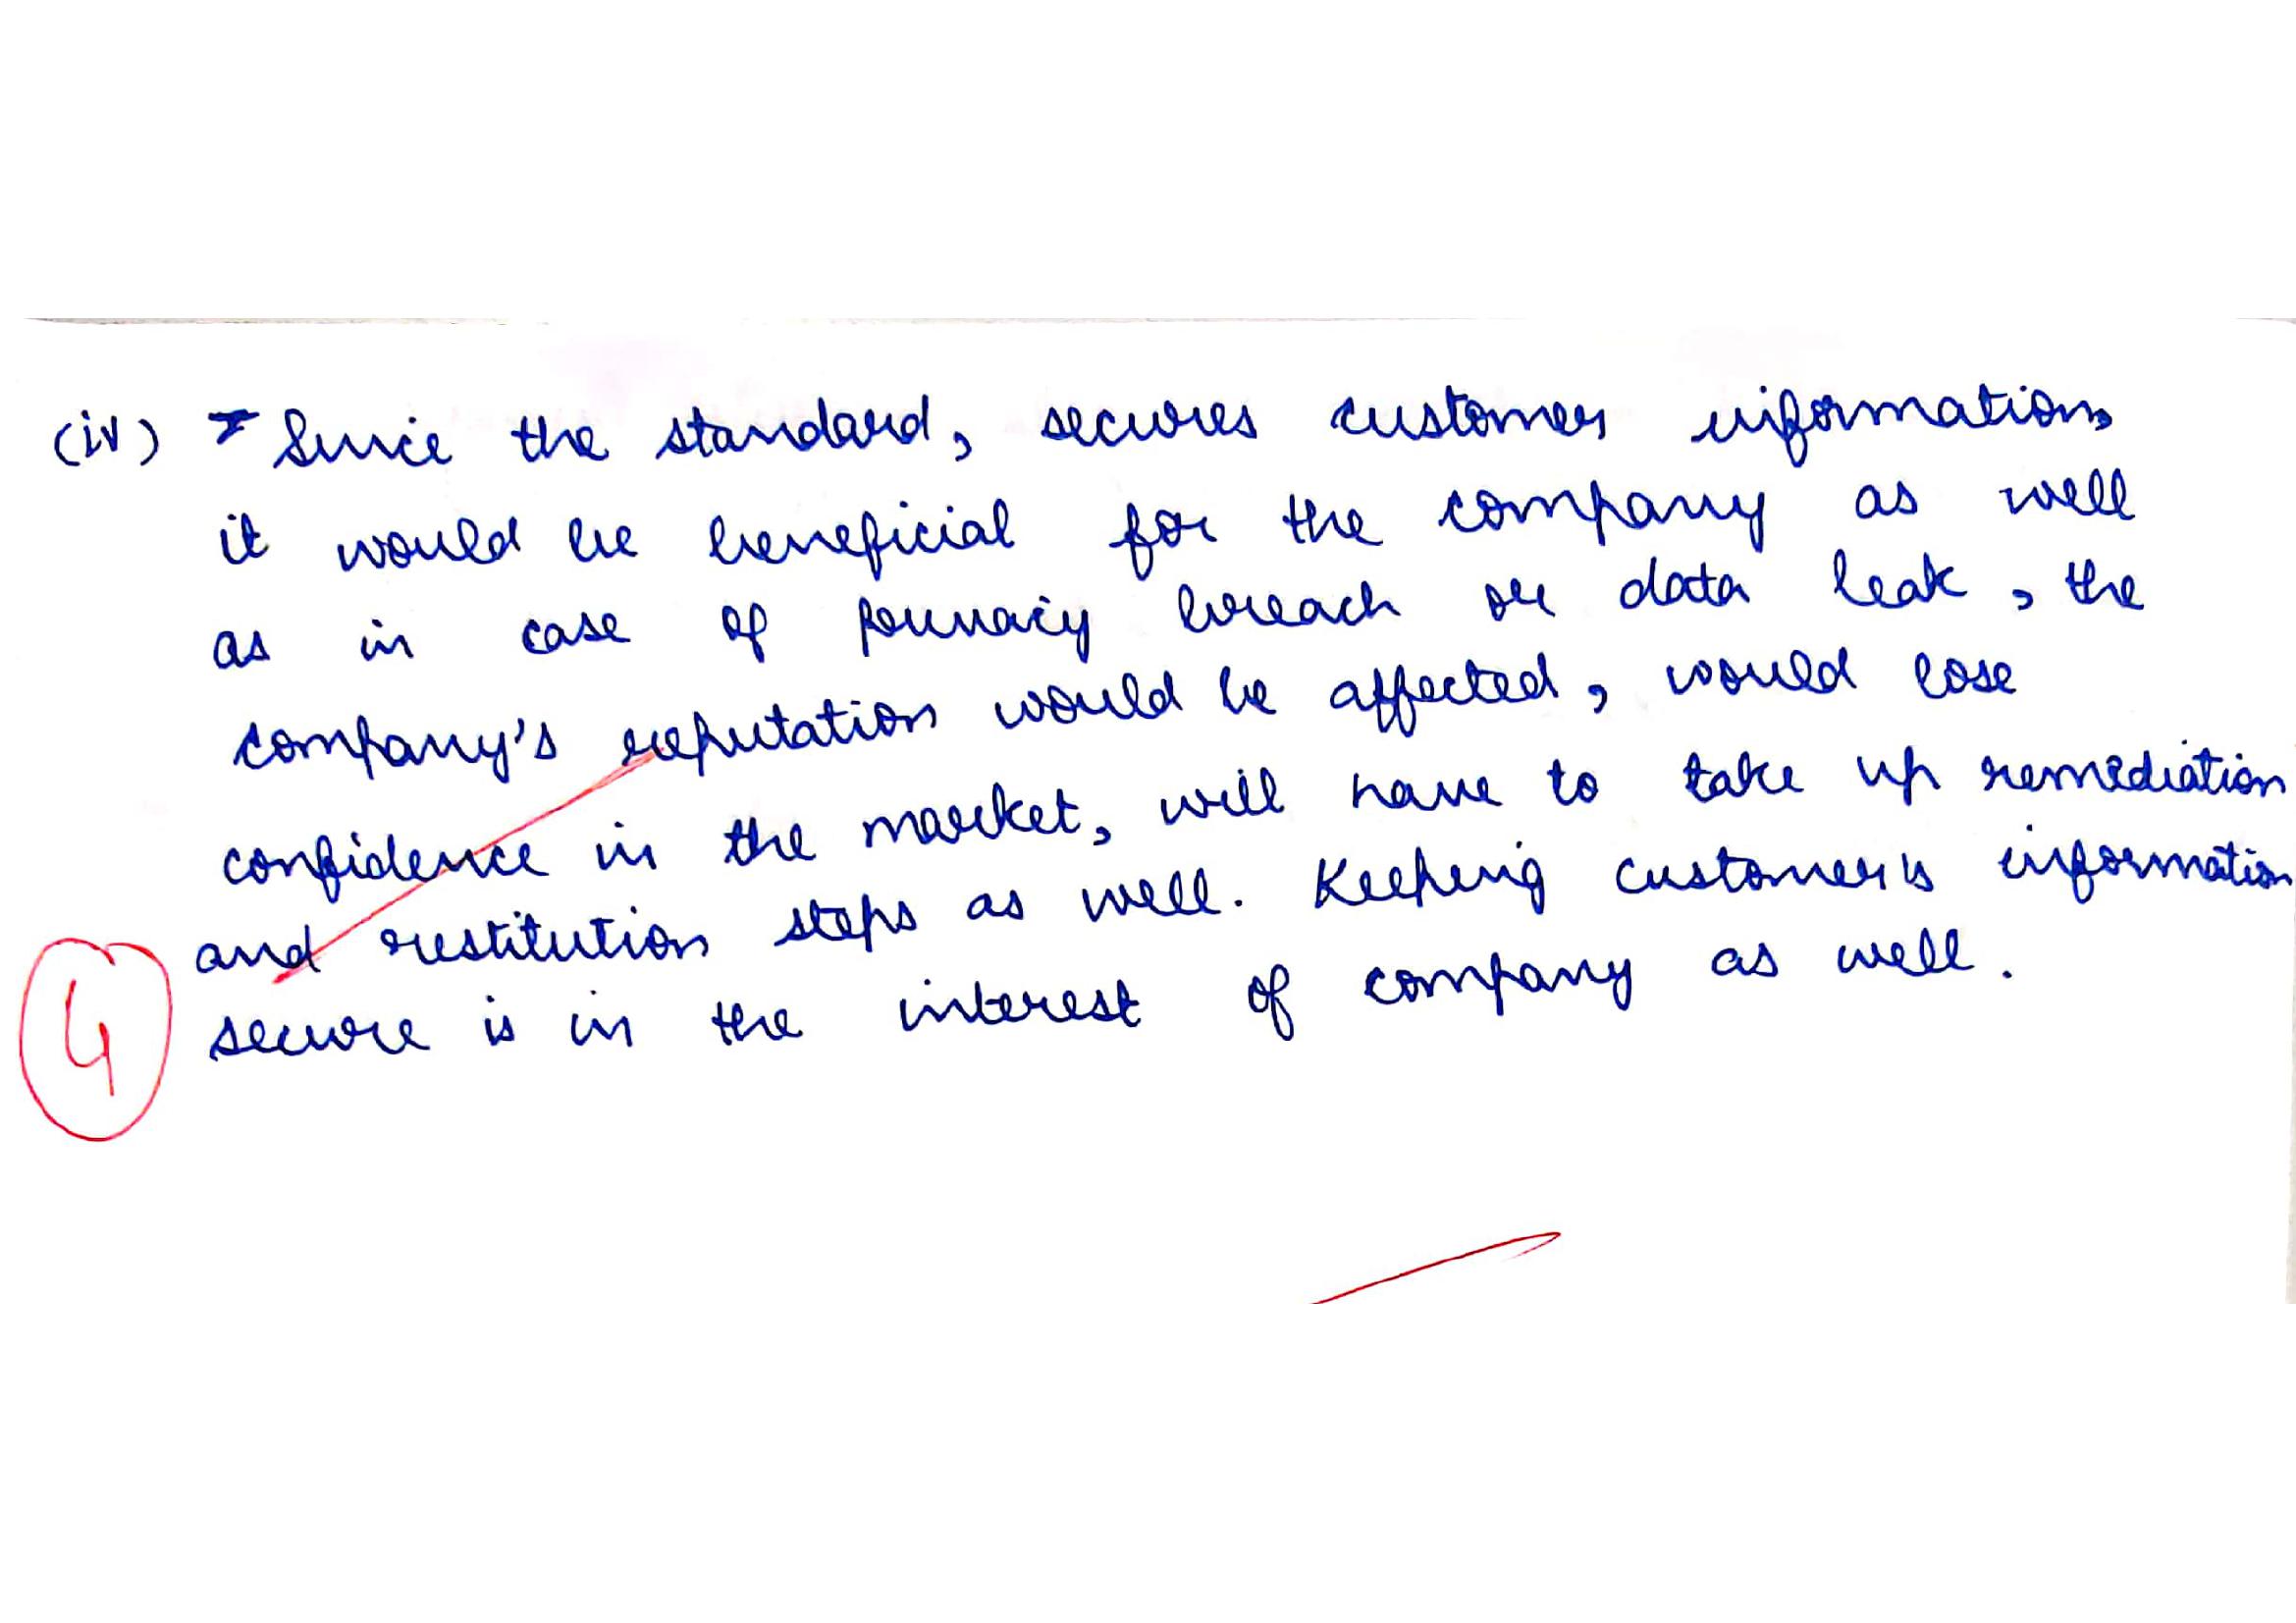 (iv) Since the standard, secures customer information,
it would be beneficial for the company as well
as in case of privacy breach or data leak, the
company's reputation would be affected, would lose
confidence in the market, will have to take up remediation
and restitution steps as well. Keeping customer's information
secure is in the interest of company as well.
4